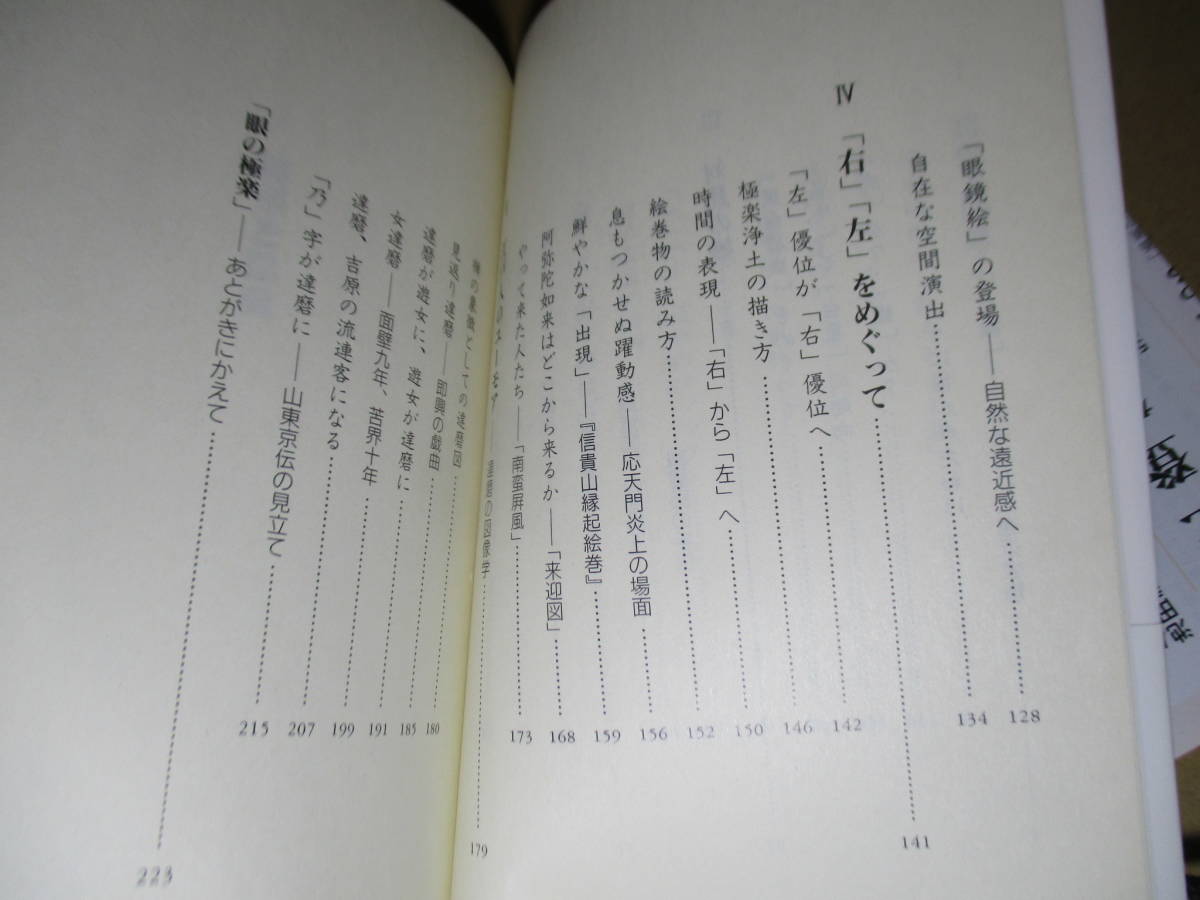 「眼鏡絵」の登場――自然な遠近感へ……128
自在な空間演出……134
Ⅳ 「右」「左」をめぐって……141
「左」優位が「右」優位へ……142
極楽浄土の描き方……146
時間の表現――「右」から「左」へ……150
絵巻物の読み方……152
息もつかせぬ躍動感――応天門炎上の場面……156
鮮やかな「出現」――『信貴山縁起絵巻』……159
阿弥陀如来はどこから来るか――「来迎図」……168
やって来た人たち――「南蛮屛風」……173
達磨の図像学……179
禅の象徴としての達磨図……180
見返り達磨――即興の戯曲……185
達磨が遊女に、遊女が達磨に……191
女達磨――面壁九年、苦界十年……199
達磨、吉原の流連客になる……207
「乃」字が達磨に――山東京伝の見立て……215
「眼の極楽」――あとがきにかえて……223